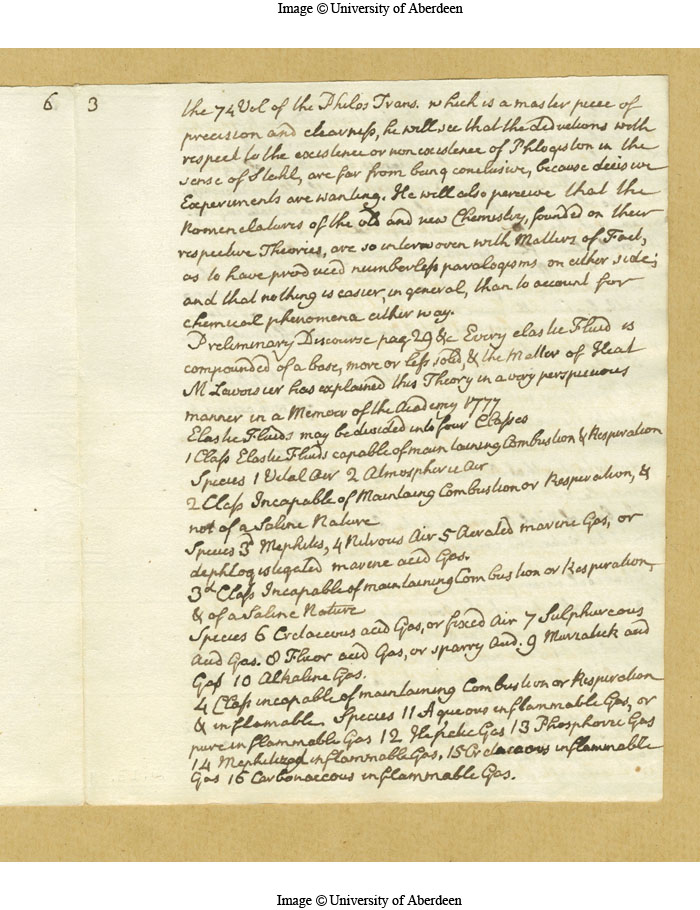 Image © University of Aberdeen
6 3
the 74 Vol of the Philos Trans. which is a master piece of
precision and clearness, he will see that the deductions with
respect to the existence or nonexistence of Phlogiston in the
sense of Stehl, are far from being conclusive, because decisive
Experiments are wanting. He will also perceive that the
Nomenclatures of the old and new Chemistry, founded on their
respective Theories, are so interwoven with Matters of Fact,
as to have produced numberless paralogisms on either side;
and that nothing is easier, in general, than to account for
chemical phenomena either way.
Preliminary Discourse pag 29 &c Every elastic Fluid is
compounded of a base, more or less solid, & the Matter of Heat
M Lavoisier has explained this Theory in a very perspicuous
manner in a Memoir of the Academy 1777
Elastic Fluids may be divided into four Classes
1 Class Elastic Fluids capable of maintaining Combustion & Respiration
Species 1 Vital Air 2 Atmospheric Air
2 Class Incapable of Maintaing Combustion or Respiration, &
not of a Saline Nature
Species 3 Mephitis, 4 Nitrous Air 5 Aerated marine Gas, or
dephlogisticated marine acid Gas.
3d Class Incapable of maintaining Combustion or Respiration,
& of a Saline Nature
Species 6 Cretaceous acid Gas, or fixed Air 7 Sulphureous
Acid Gas. 8 Fluor acid Gas, or sparry Acid. 9 Muriatick acid
Gas 10 Alkaline Gas.
4 Class incapable of maintaining Combustion or Respiration
& inflamable. Species 11 Aqueous inflammable Gas, or
pure inflammable Gas 12 Hepatic Gas 13 Phosphoric Gas
14 Mephitized inflammable Gas. 15 Cretaceous inflammable
Gas 16 Carbonaceous inflammable Gas.
Image © University of Aberdeen